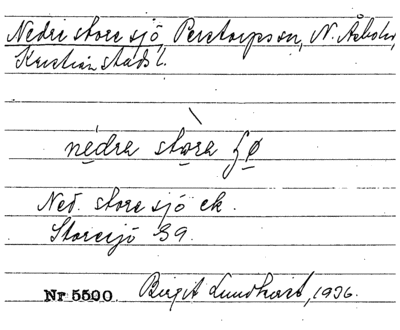 Nedre store sjö, Perstorps sn, N. Åsbohd,
Kristianstads l.
nedra stora ʃø
Ned. store sjö ek.
Storesjö 39.
Nr 5500 Birgit Lundkvist, 1936.